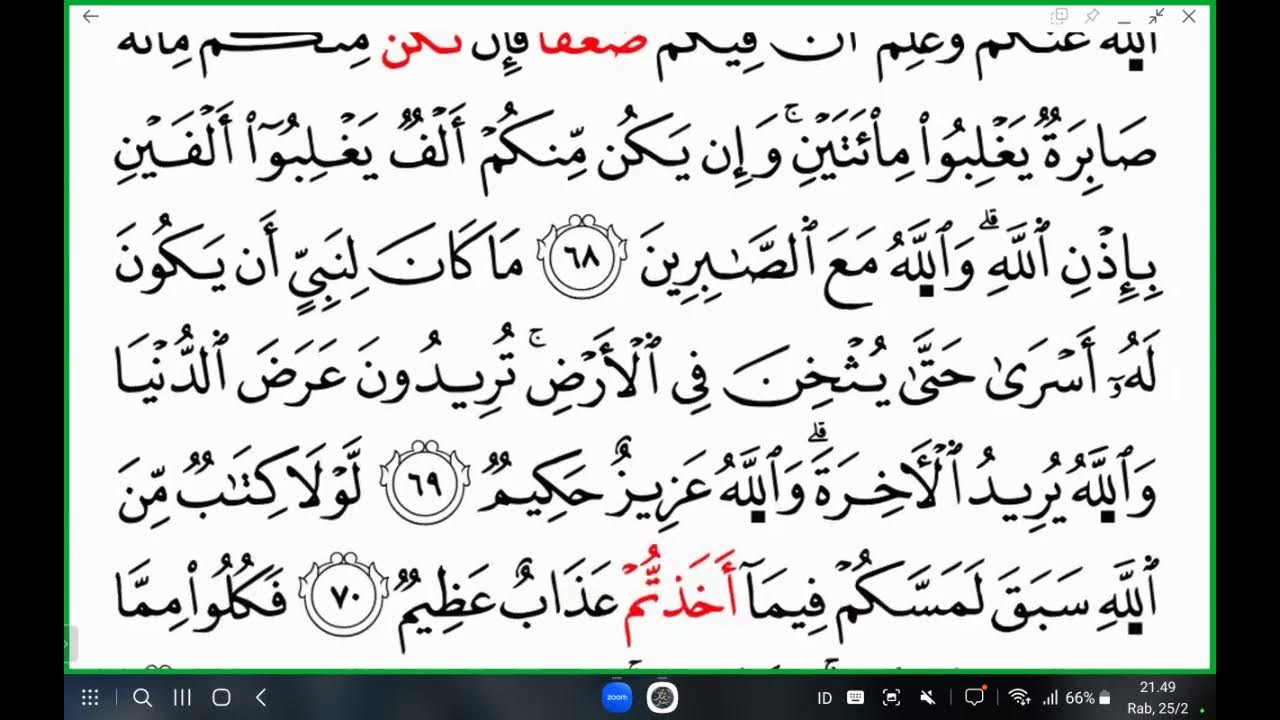 ٱللَّهُ عَنكُمْ وَعَلِمَ أَنَّ فِيكُمْ ضُعْفًا فَإِن تَكُن مِّنكُم مِّا۟ئَةٌ
صَابِرَةٌ يَغْلِبُوا۟ مِا۟ئَتَيْنِ ۚ وَإِن يَكُن مِّنكُمْ أَلْفٌ يَغْلِبُوٓا۟ أَلْفَيْنِ
بِإِذْنِ ٱللَّهِ ۗ وَٱللَّهُ مَعَ ٱلصَّـٰبِرِينَ ٦٨ مَا كَانَ لِنَبِىٍّ أَن يَكُونَ
لَهُۥٓ أَسْرَىٰ حَتَّىٰ يُثْخِنَ فِى ٱلْأَرْضِ ۚ تُرِيدُونَ عَرَضَ ٱلدُّنْيَا
وَٱللَّهُ يُرِيدُ ٱلْـَٔاخِرَةَ ۗ وَٱللَّهُ عَزِيزٌ حَكِيمٌ ٦٩ لَّوْلَا كِتَـٰبٌ مِّنَ
ٱللَّهِ سَبَقَ لَمَسَّكُمْ فِيمَآ أَخَذتُّمْ عَذَابٌ عَظِيمٌ ٧٠ فَكُلُوا۟ مِمَّا
zoom
ID
66%
21.49
Rab, 25/2